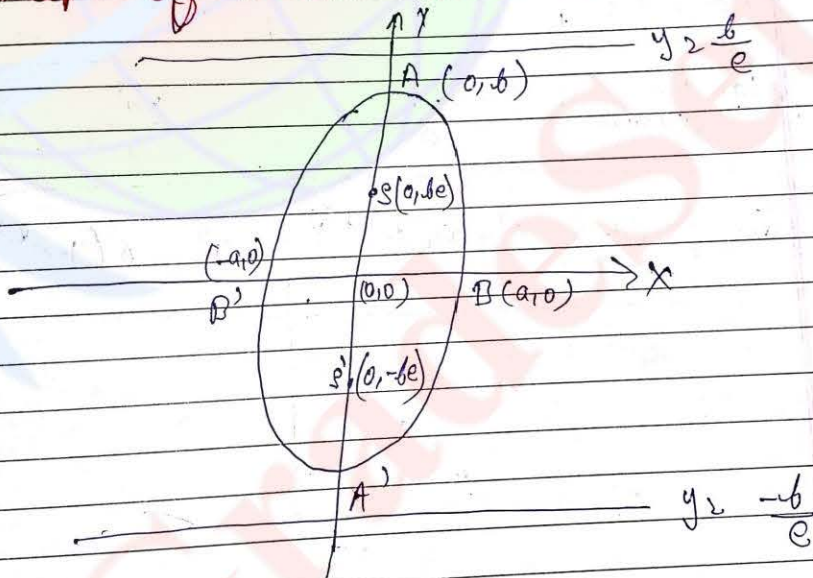 Y
y = b/e
A (0, b)
S(0, be)
(-a, 0)
B'
(0, 0)
B (a, 0)
X
S' (0, -be)
A'
y = -b/e